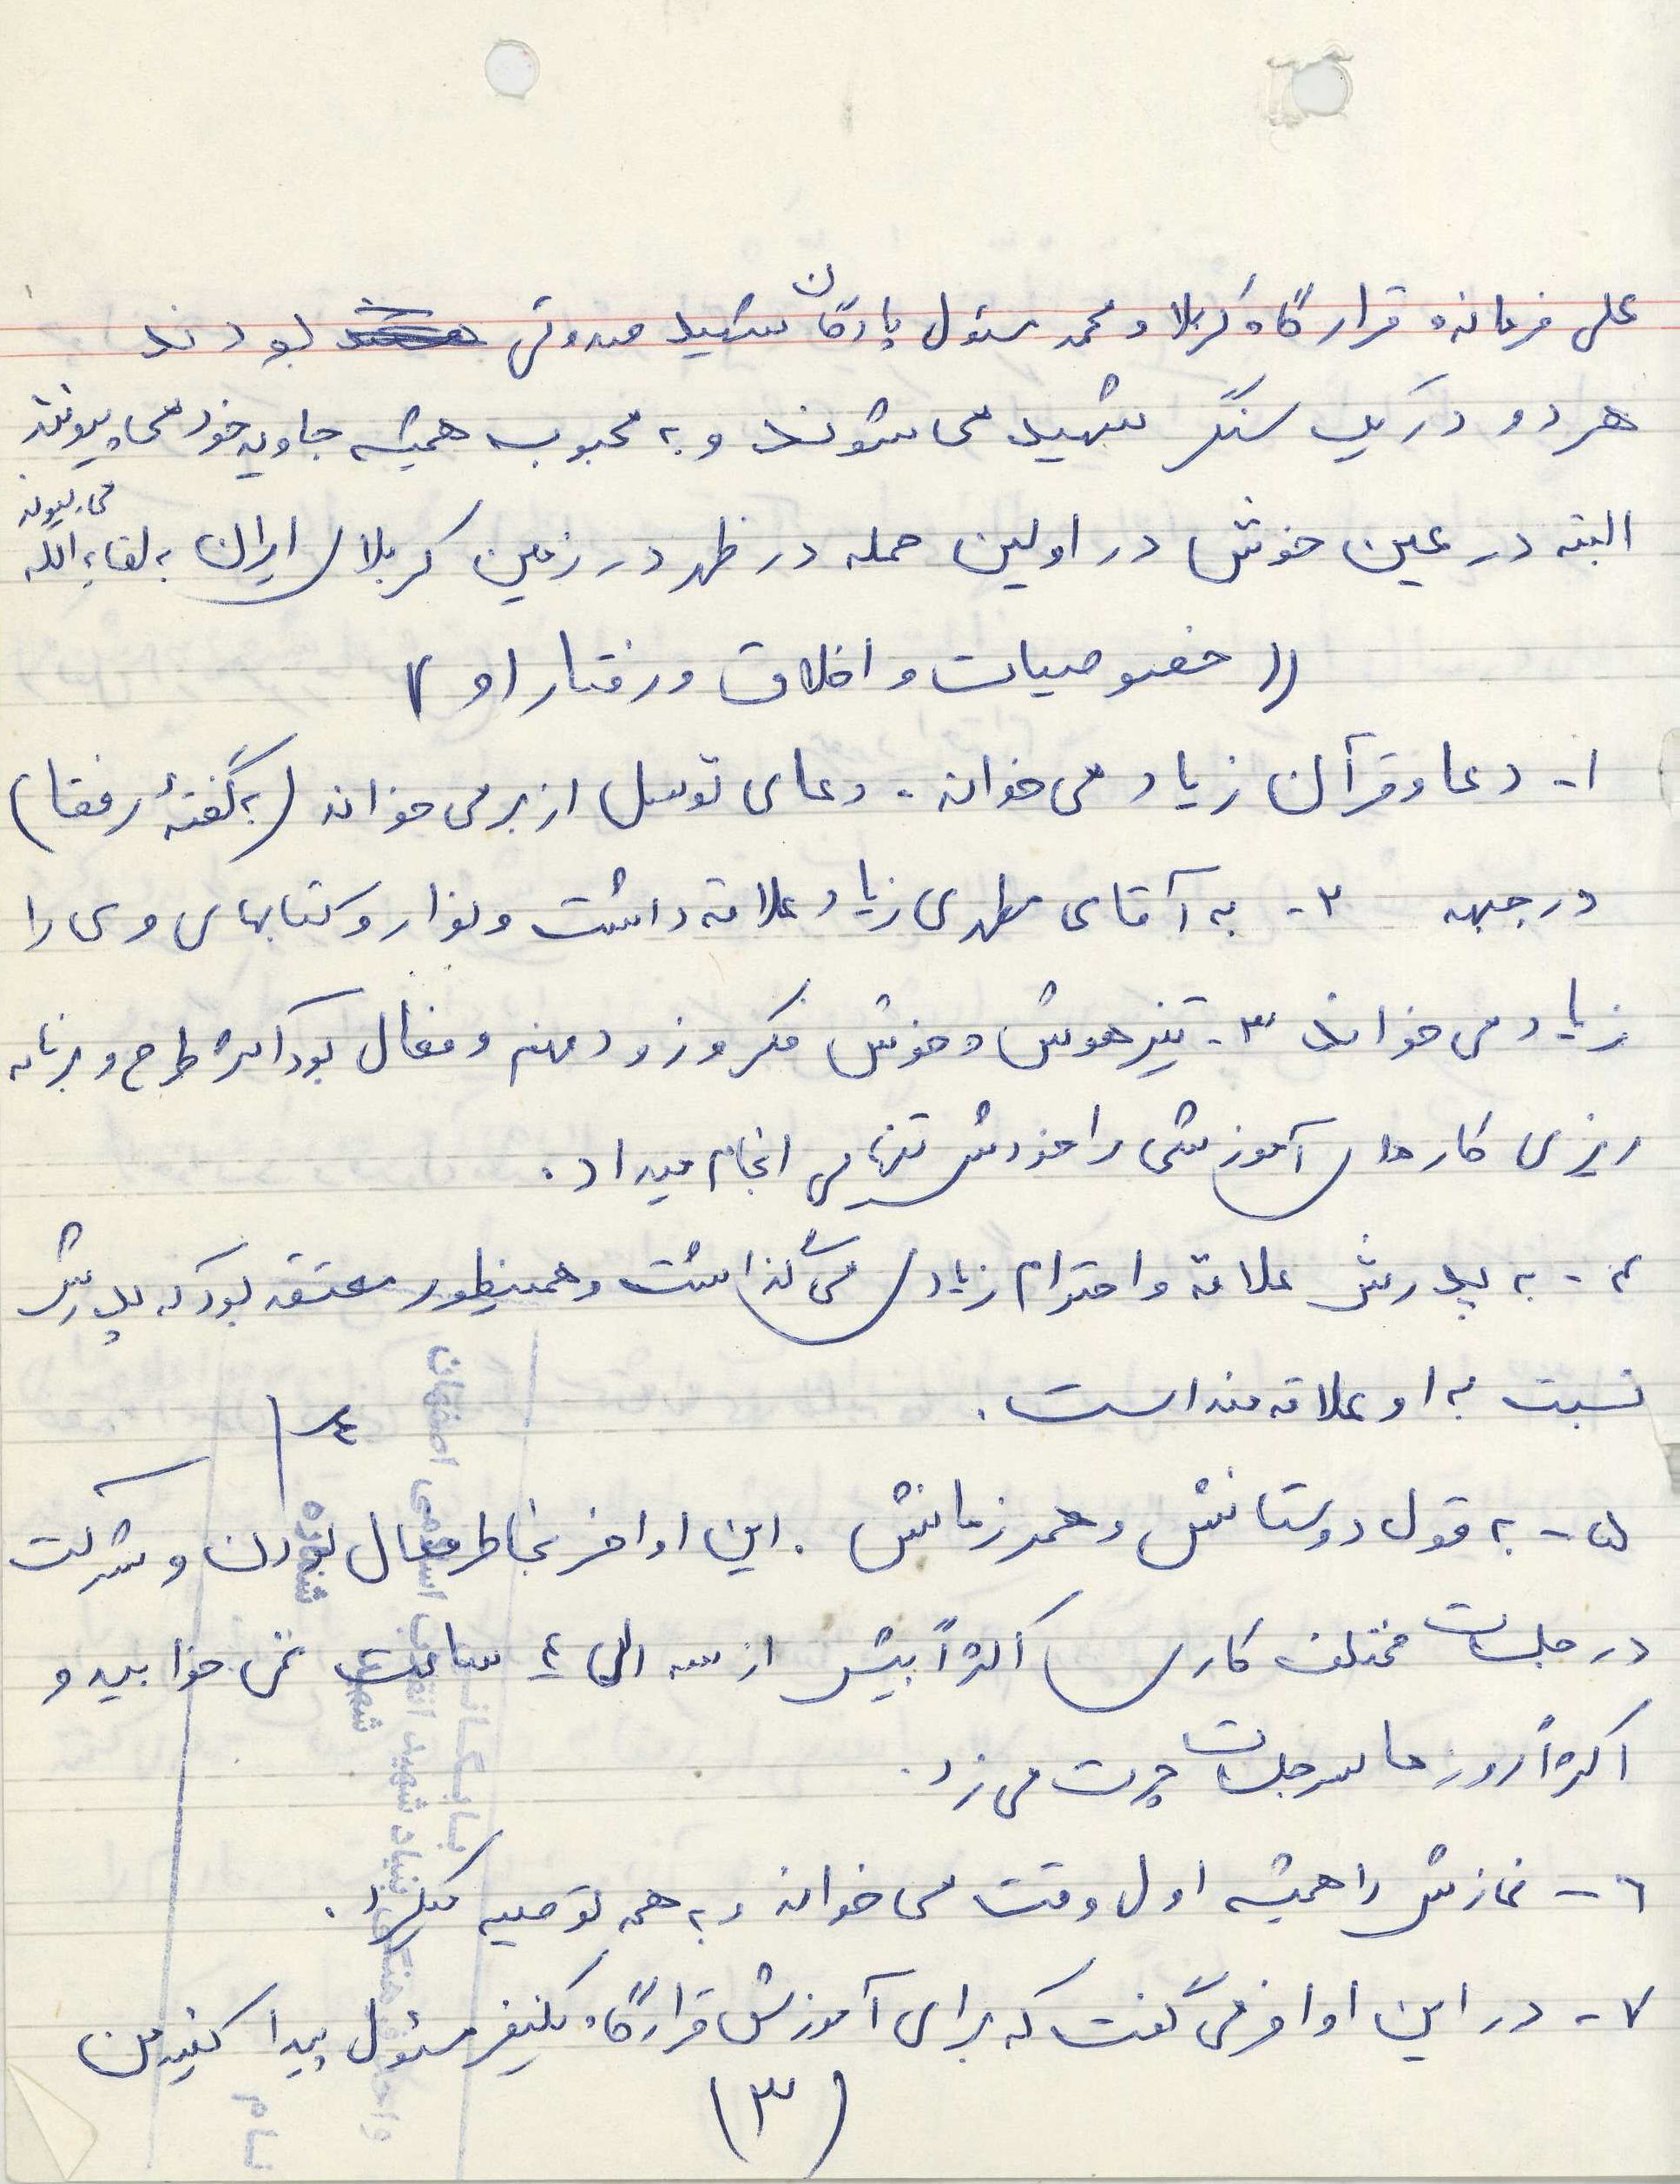 علی فرمانده قرارگاه کربلا و محمد مسئول پادگان شهید صدوقی بودند
هر دو در یک سنگر شهید می شوند و به محبوب همیشه جاوید خود می پیوندند
البته در عین خوش در اولین حمله در ظهر در زمین کربلای ایران به لقاء الله می پیوندند
(( خصوصیات و اخلاق و رفتار او ))
۱- دعا و قرآن زیاد می خواند . دعای توسل از بر می خواند (به گفتهٔ رفقا)
در جبهه ۲- به آقای مطهری زیاد علاقه داشت و نوار و کتابهای وی را
زیاد می خواند ۳- تیزهوش و خوش فکر و زود فهم و فعال بود اکثر طرح و برنامه
ریزی کارهای آموزشی را خودش تنهایی انجام میداد .
۴- به پدرش علاقه و احترام زیادی می گذاشت و همینطور معتقد بود که پدرش
نسبت به او علاقه مند است .
۵- به قول دوستانش و همرزمانش . این اواخر بخاطر فعال بودن و شرکت
در جلسات مختلف کاری اکثراً بیش از سه الی ٤ ساعت نمی خوابید و
اکثراً روزها سر جلسات چرت می زد .
٦- نمازش را همیشه اول وقت می خواند و به همه توصیه میکرد .
۷- در این اواخر می گفت که برای آموزش قرارگاه یکنفر مسئول پیدا کنید من
(۳)
بایگانی
بنیاد شهید انقلاب اسلامی اصفهان
شماره
نام